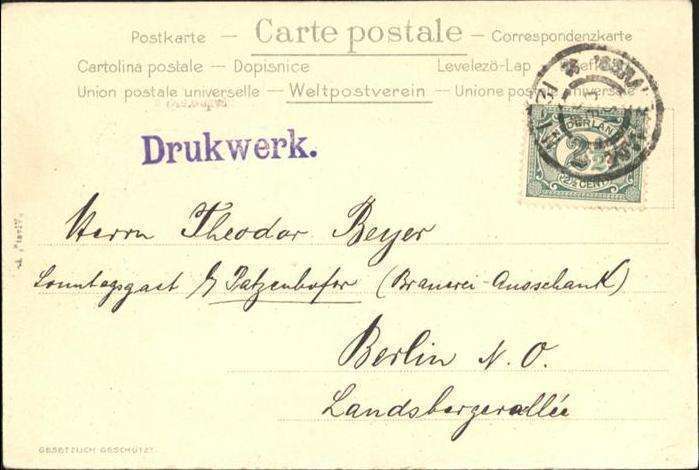 Postkarte — Carte postale — Correspondenzkarte
Cartolina postale — Dopisnice Levelező-Lap
Union postale universelle — Weltpostverein — Unione postale universale
Drukwerk.
2½
2½ CENT
Herrn Theodor Beyer
Sonntagsgast b/ Patzenhofer (Brauerei-Ausschank)
Berlin N. O.
Landsbergerallée
GESETZLICH GESCHÜTZT.